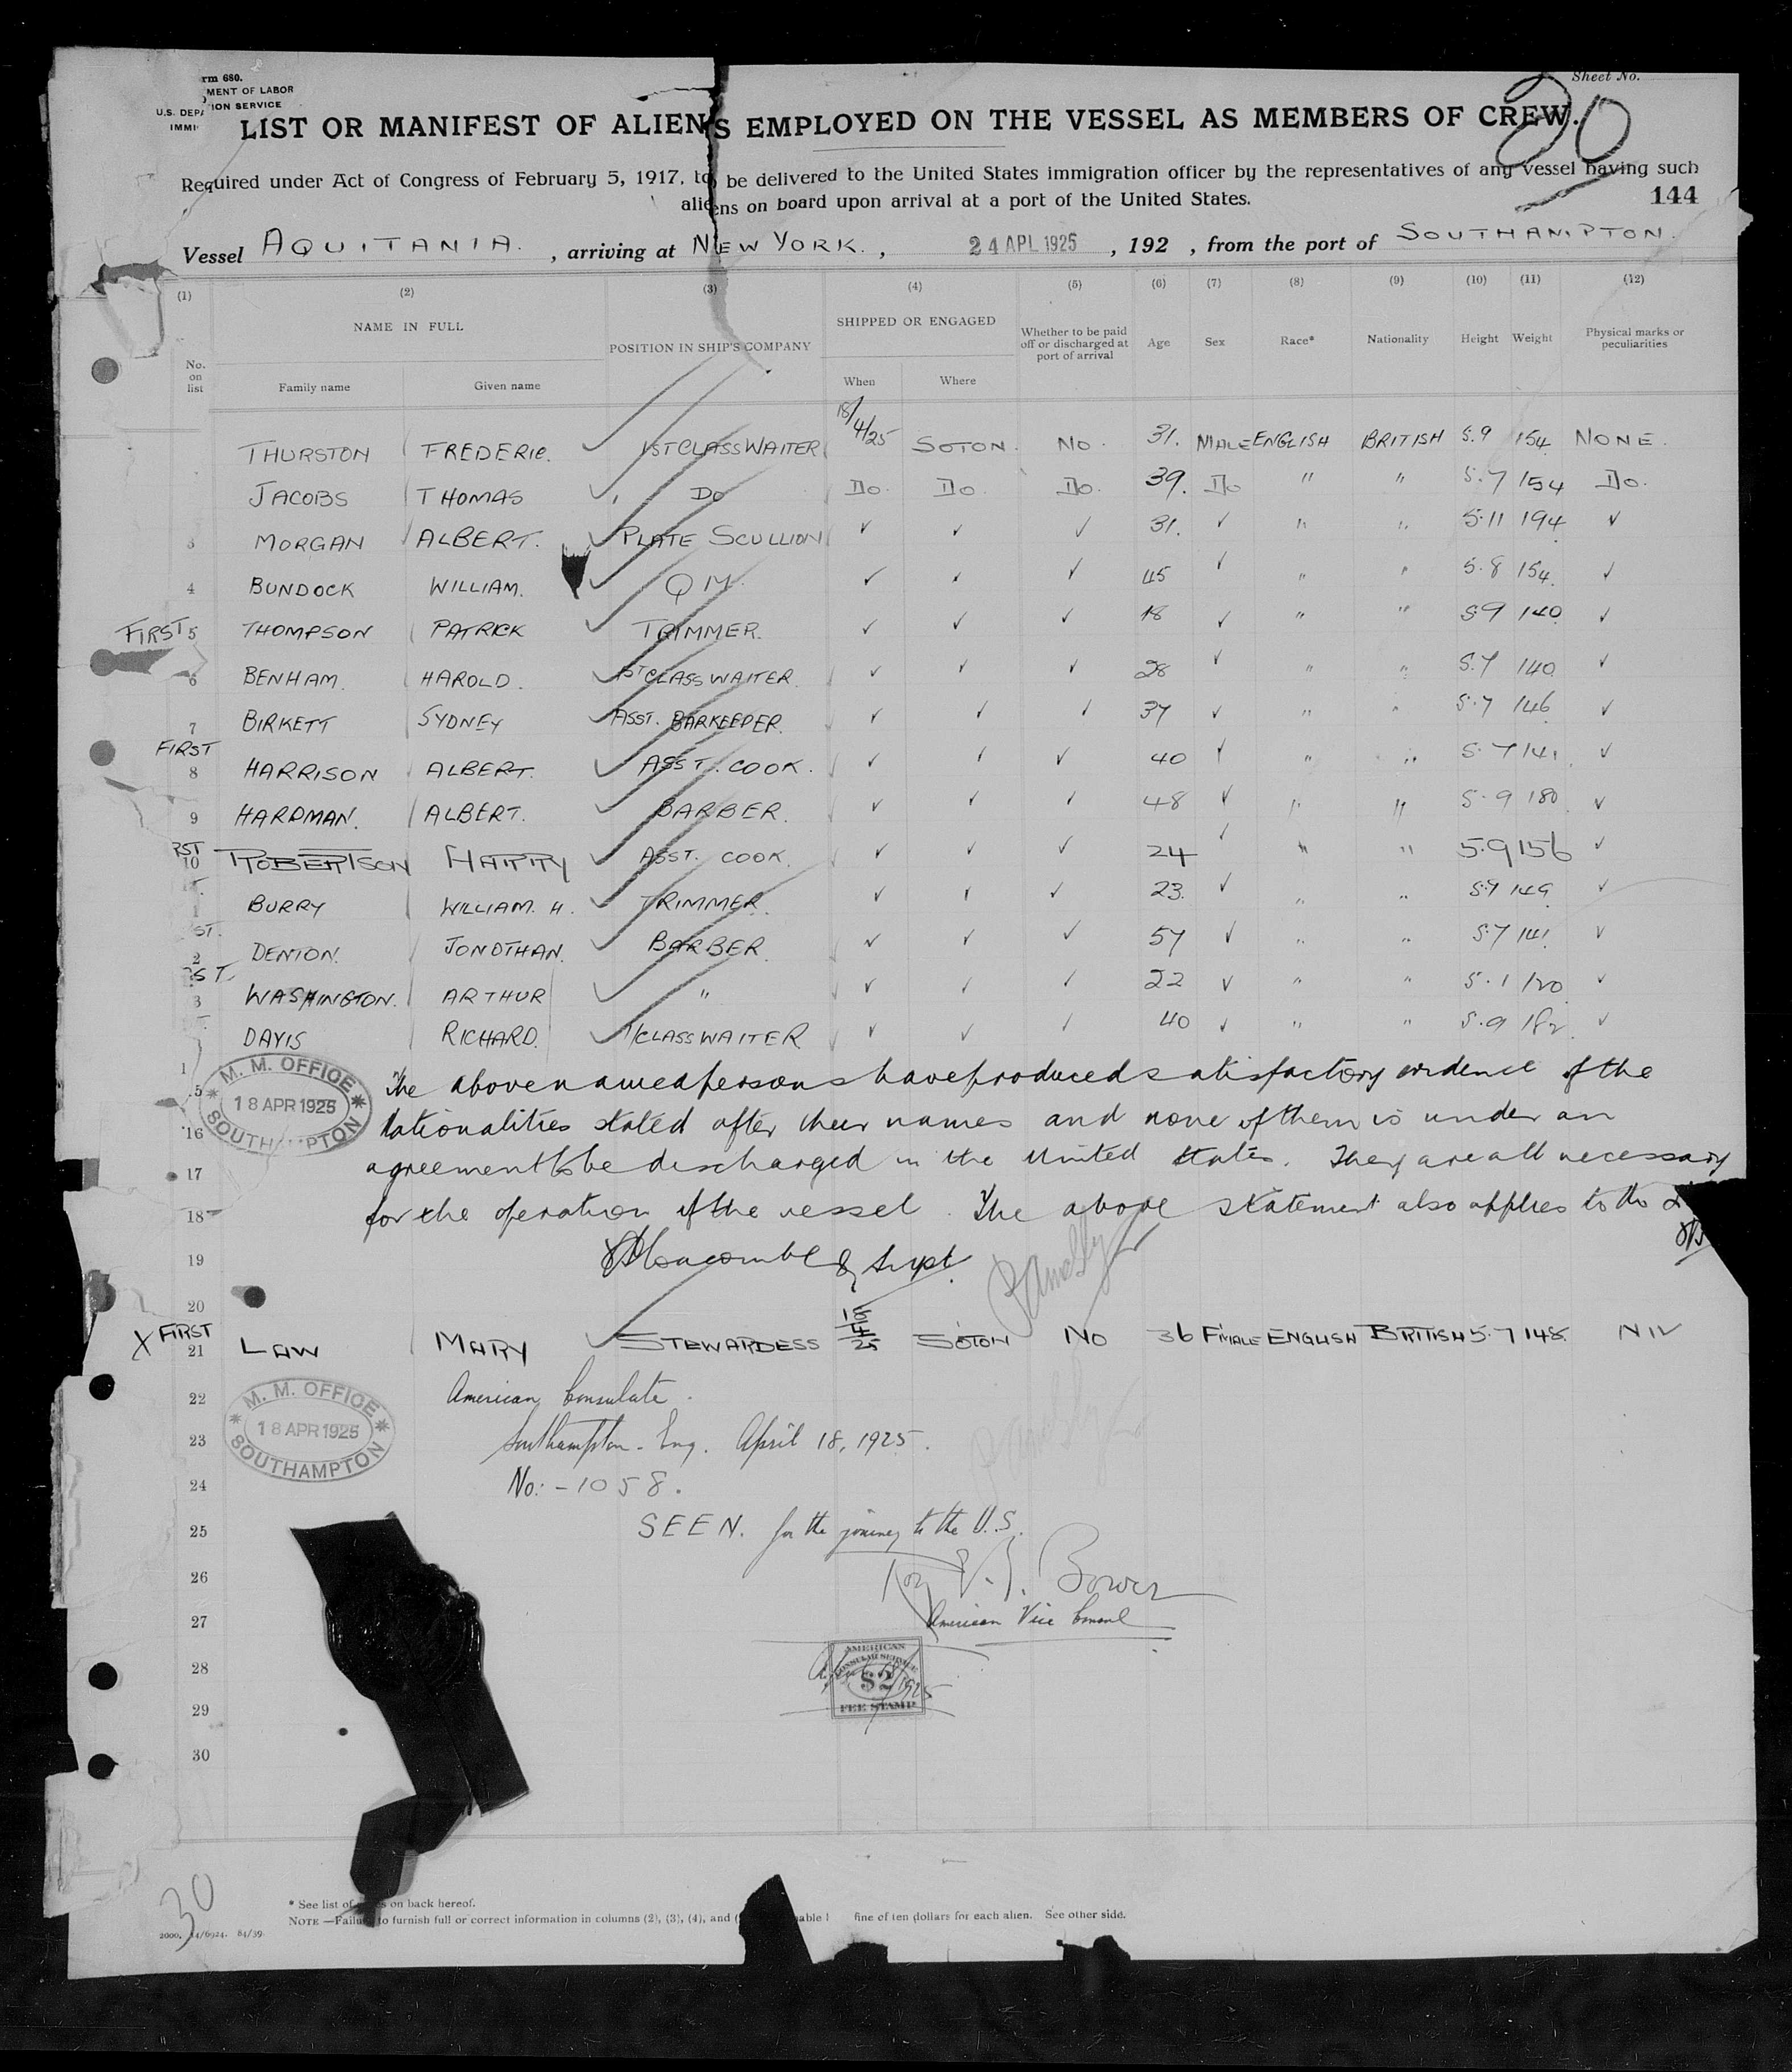 Sheet No.
rm 680.
MENT OF LABOR
U.S. DEPA ION SERVICE
IMMI
20
LIST OR MANIFEST OF ALIENS EMPLOYED ON THE VESSEL AS MEMBERS OF CREW.
Required under Act of Congress of February 5, 1917, to be delivered to the United States immigration officer by the representatives of any vessel having such
aliens on board upon arrival at a port of the United States.
144
Vessel AQUITANIA. , arriving at NEW YORK. , 24 APL 1925 , 192 , from the port of SOUTHAMPTON.
(1) (2) (3) (4) (5) (6) (7) (8) (9) (10) (11) (12)
No. on list NAME IN FULL POSITION IN SHIP'S COMPANY SHIPPED OR ENGAGED Whether to be paid off or discharged at port of arrival Age Sex Race* Nationality Height Weight Physical marks or peculiarities
Family name Given name When Where
THURSTON FREDERIC. 1ST CLASS WAITER 18/4/25 SOTON. NO. 31. MALE ENGLISH BRITISH 5.9 154 NONE.
JACOBS THOMAS " DO DO. DO. DO. 39. DO " " 5.7 154 DO.
3 MORGAN ALBERT. PLATE SCULLION ✓ ✓ ✓ 31. ✓ " " 5.11 194 ✓
4 BUNDOCK WILLIAM. QM. ✓ ✓ ✓ 45 ✓ " " 5.8 154. ✓
FIRST 5 THOMPSON PATRICK TRIMMER. ✓ ✓ ✓ 18 ✓ " " 5.9 140 ✓
6 BENHAM. HAROLD. 1ST CLASS WAITER. ✓ ✓ ✓ 28 ✓ " " 5.7 140 ✓
7 BIRKETT SYDNEY ASST. BARKEEPER. ✓ ✓ ✓ 37 ✓ " " 5.7 146 ✓
FIRST
8 HARRISON ALBERT. ASST. COOK. ✓ ✓ ✓ 40 ✓ " " 5.7 141. ✓
9 HARDMAN. ALBERT. BARBER. ✓ ✓ ✓ 48 ✓ " " 5.9 180 ✓
RST
10 ROBERTSON HARRY ASST. COOK. ✓ ✓ ✓ 24 ✓ " " 5.9 156 ✓
1 BURRY WILLIAM. H. TRIMMER. ✓ ✓ ✓ 23. ✓ " " 5.9 149 ✓
ST.
2 DENTON. JONOTHAN. BARBER. ✓ ✓ ✓ 57 ✓ " " 5.7 141. ✓
ST.
3 WASHINGTON. ARTHUR " ✓ ✓ ✓ 22 ✓ " " 5.1 120 ✓
DAVIS RICHARD. 1 CLASS WAITER ✓ ✓ ✓ 40 ✓ " " 5.9 182. ✓
M. M. OFFICE
18 APR 1925
SOUTHAMPTON
The above named persons have produced satisfactory evidence of the
Nationalities stated after their names and none of them is under an
agreement to be discharged in the United States. They are all necessary
for the operation of the vessel. The above statement also applies to the
Supt.
1
5
16
17
18
19
20
X FIRST
21 LAW MARY STEWARDESS 18/4/25 SOTON NO 36 F'MALE ENGLISH BRITISH 5.7 148. NIL
M. M. OFFICE
18 APR 1925
SOUTHAMPTON
22 American Consulate.
23 Southampton - Eng. April 18, 1925.
24 No: - 1058.
25 SEEN. for the journey to the U.S.
26 Roy E. B. Bower
27 American Vice Consul
28
29
30
AMERICAN
CONSULAR SERVICE
$2
FEE STAMP
30
* See list of on back hereof.
NOTE —Failure to furnish full or correct information in columns (2), (3), (4), and ( able fine of ten dollars for each alien. See other side.
2000. 14/6924. 84/39.